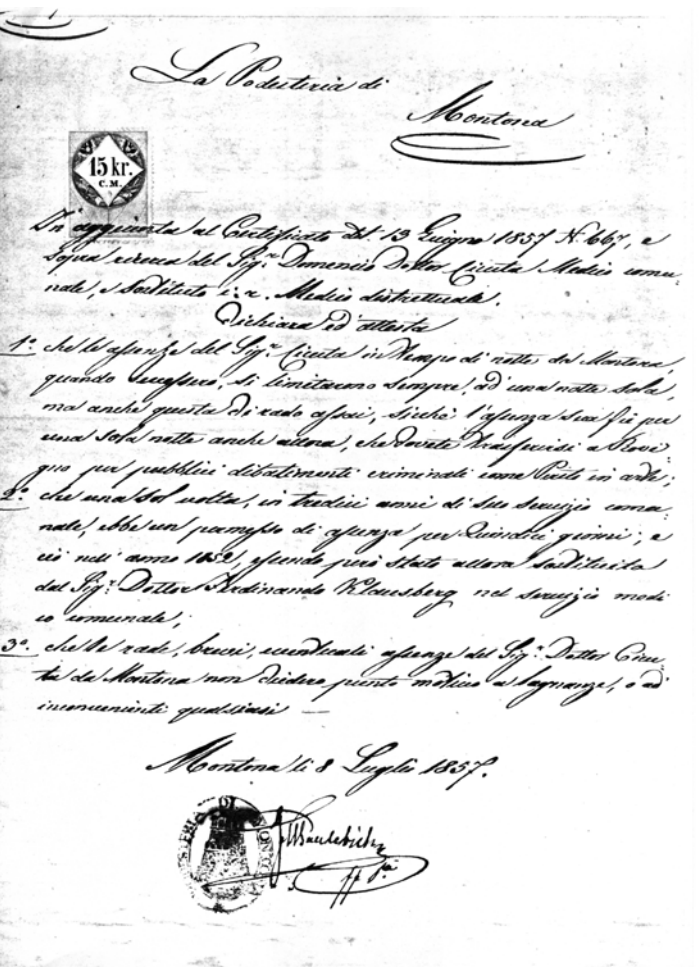 La Podesteria di
Montona
15 kr.
C.M.
In aggiunta al Certificato dd.º 13 Giugno 1857 N. 667, e
sopra ricerca del Sig.r Domenico Dottor Cicuta Medico comu-
nale, e sostituto i. r. Medico distrettuale.
Dichiara ed attesta
1º. che le assenze del Sig.r Cicuta in tempo di notte da Montona,
quando successero, si limitarono sempre, ad una notte sola,
ma anche questa di rado assai, sicchè l'assenza sua fù per
una sola notte anche allora, che dovete trasferirsi a Rovi-
gno per pubblici dibatimenti criminali come Perito in arte;
2º. che una sol volta, in tredici anni di suo servizio comu-
nale, ebbe un permesso di assenza per quindici giorni, e
ciò nell'anno 1852, essendo però stato allora sostituito
dal Sig.r Dottor Ferdinando Klausberg nel servizio medi-
co comunale;
3º. che le rade, brevi, eventuali assenze del Sig.r Dottor Cicu-
ta da Montona non diedero punto motivo a lagnanze, o ad
inconvenienti qualsiasi —
Montona li 8 Luglio 1857.
DI